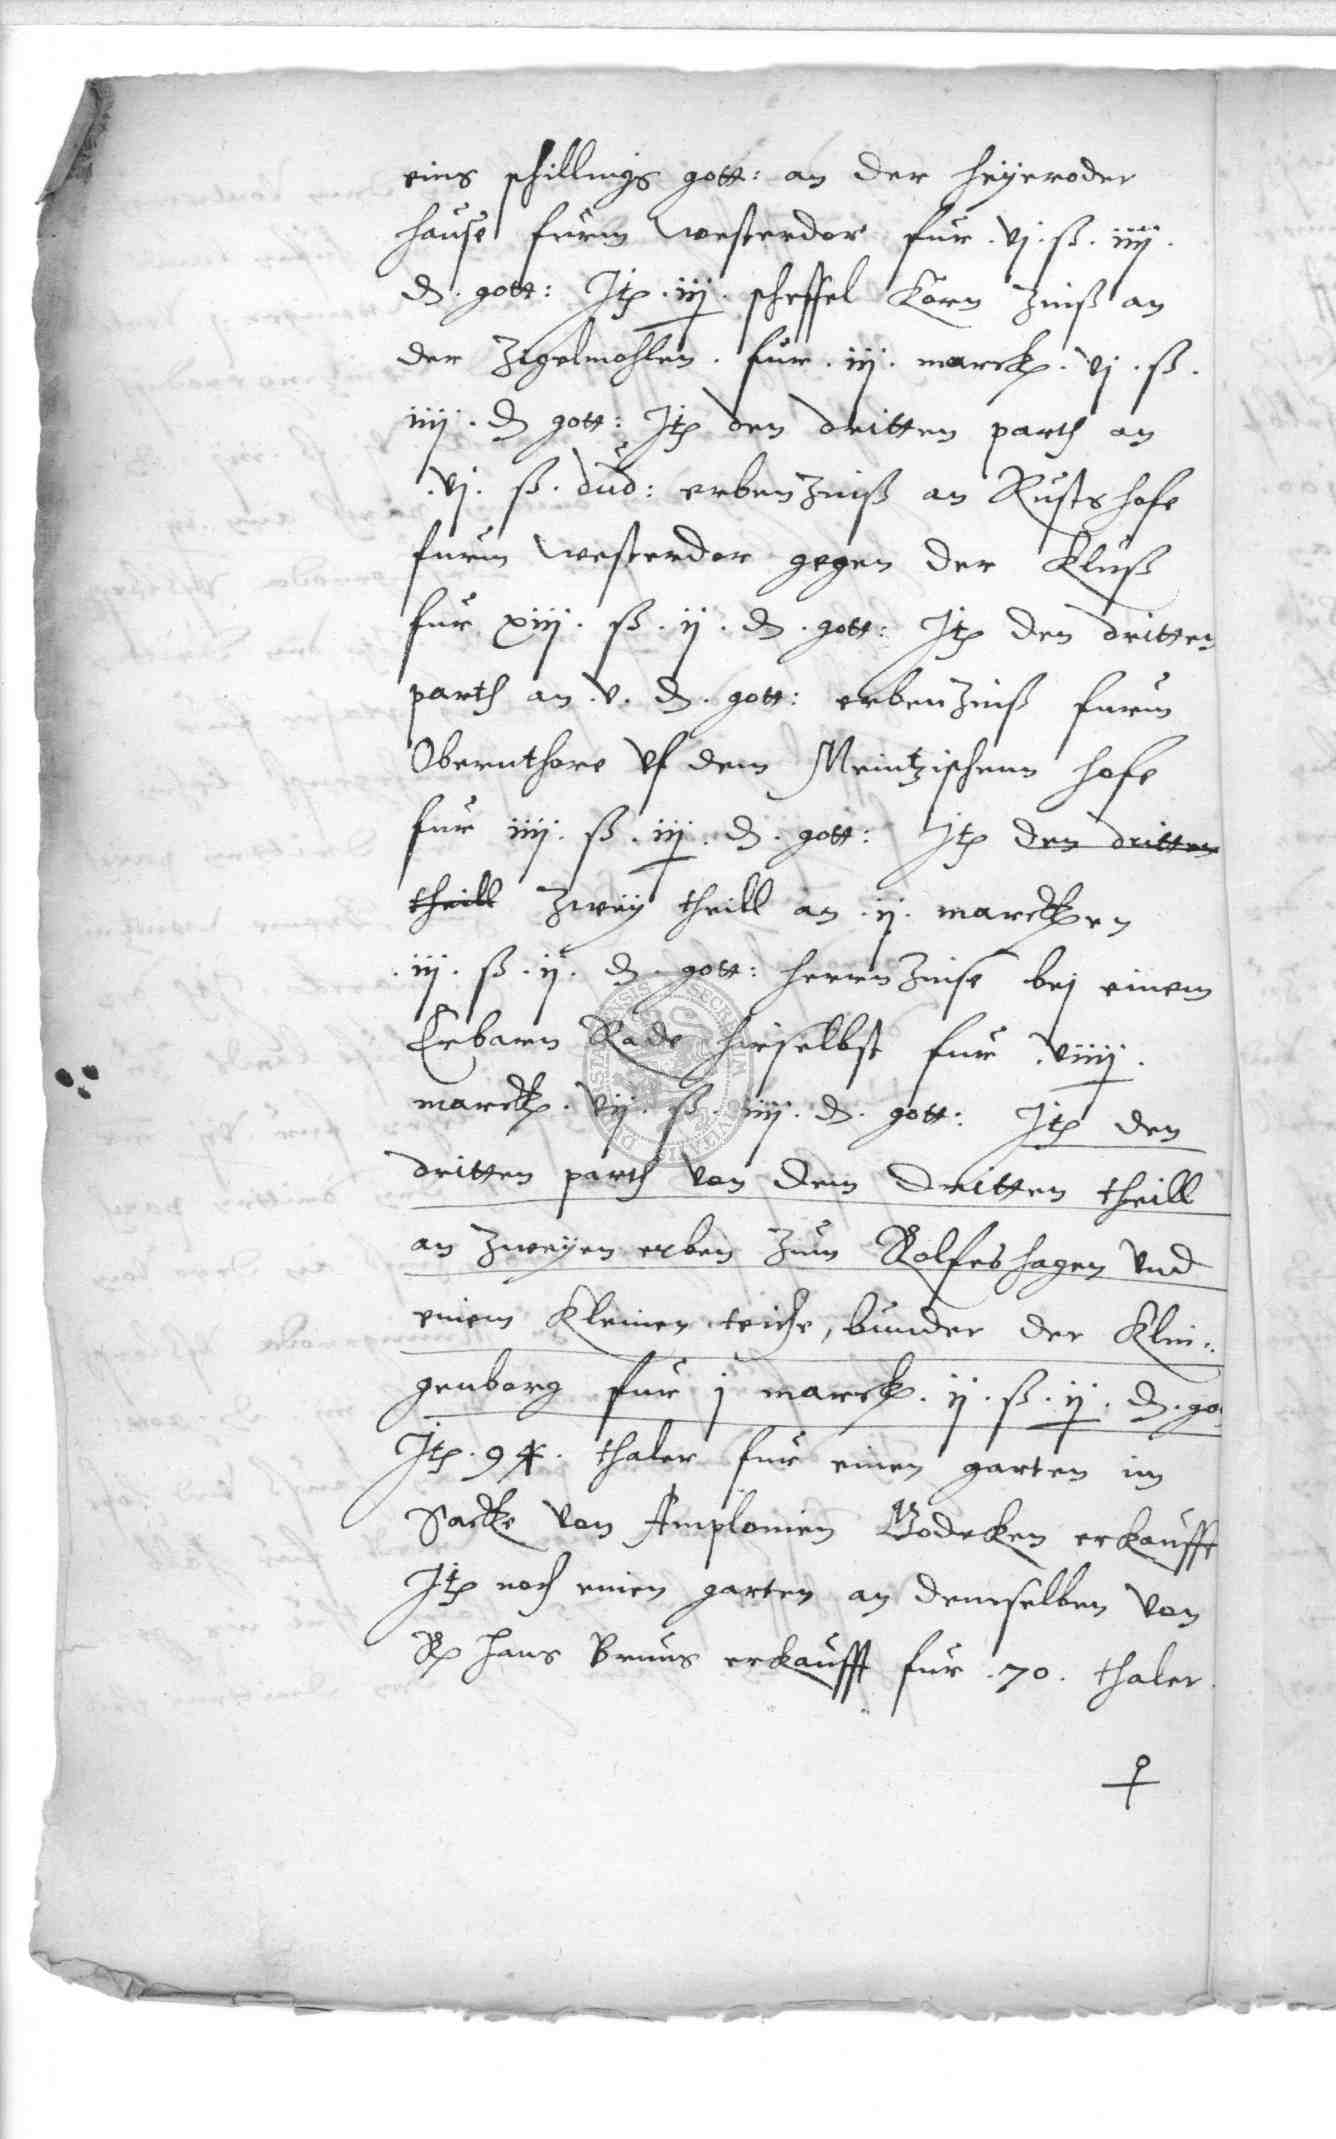 eins schillings gott: an der Heyeroder
hause furm westerdor fur .vj. ß. iiij.
₰. gott: Itp .iij. scheffel Korn Zinß an
der Zigelmohlen. fur .iij. marck. vj. ß.
iiij. ₰ gott: Itp den dritten parth an
.vj. ß. dud: erbenZinß an Rustshofe
furm westerdor gegen der Kluß
fur xiij. ß. ij. ₰. gott: Itp den dritten
parth an .v. ₰. gott: erbenZinß furm
Obernthore vf dem Meintzischenn hofe
fur iiij. ß. iij. ₰. gott: Itp den dritten
theill Zweÿ theill an .ij. marcken
.iij. ß. ij. ₰. gott: herrnZinse bej einem
Erbarn Rade hieselbst fur viiij.
marck. vij. ß. iiij. ₰. gott: Itp den
dritten parth von dem dritten theill
an Zweÿen erben Zum Rolfeshagen vnd
einem Kleinen teiche, bunder der Klin:
genborg fur j marck. ij. ß. ij. ₰. go
Itp. 94. thaler fur einen garten im
Sacke von Amplonien Bodecken erkaufft
Itp noch einen garten an demselben von
Hans Bruns erkaufft fur .70. thaler